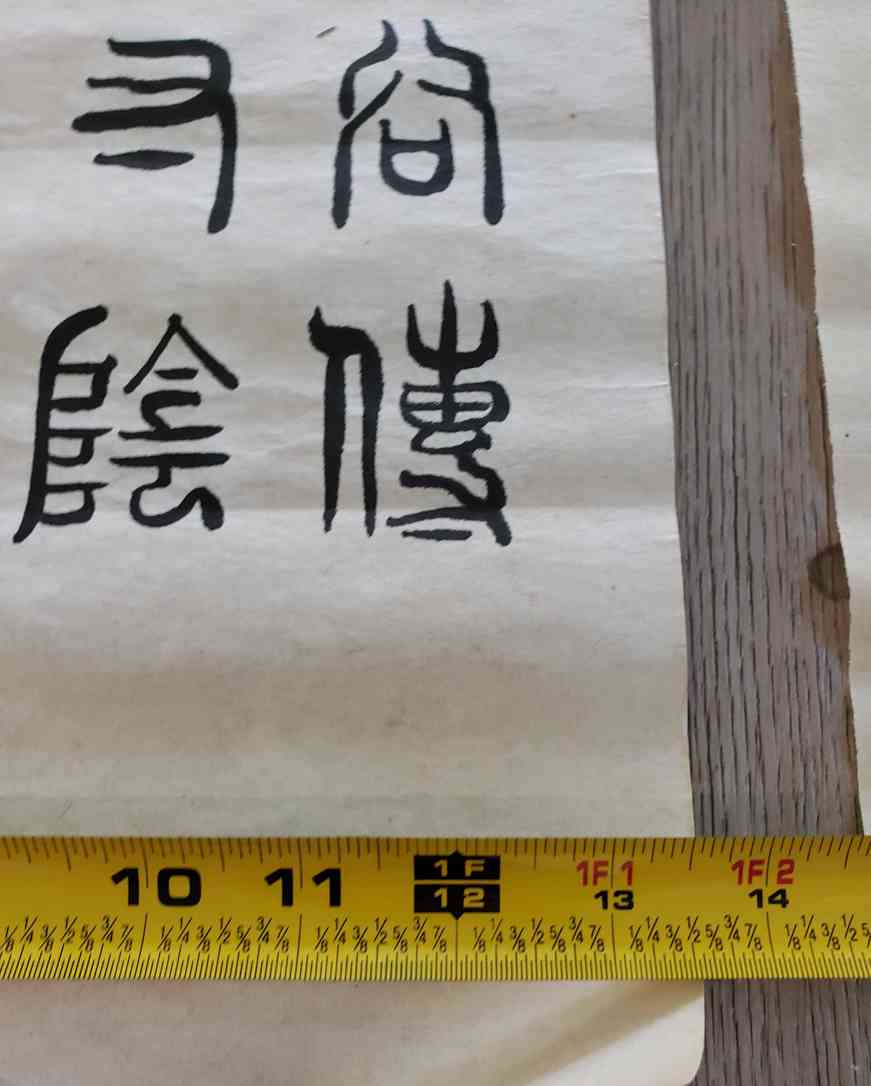 谷傳
寸陰
10 11 1F 1F 1 1F 2
12 13 14
1/8 1/4 3/8 1/2 5/8 3/4 7/8 1/8 1/4 3/8 1/2 5/8 3/4 7/8 1/8 1/4 3/8 1/2 5/8 3/4 7/8 1/8 1/4 3/8 1/2 5/8 3/4 7/8 1/8 1/4 3/8 1/2 5/8 3/4 7/8 1/8 1/4 3/8 1/2